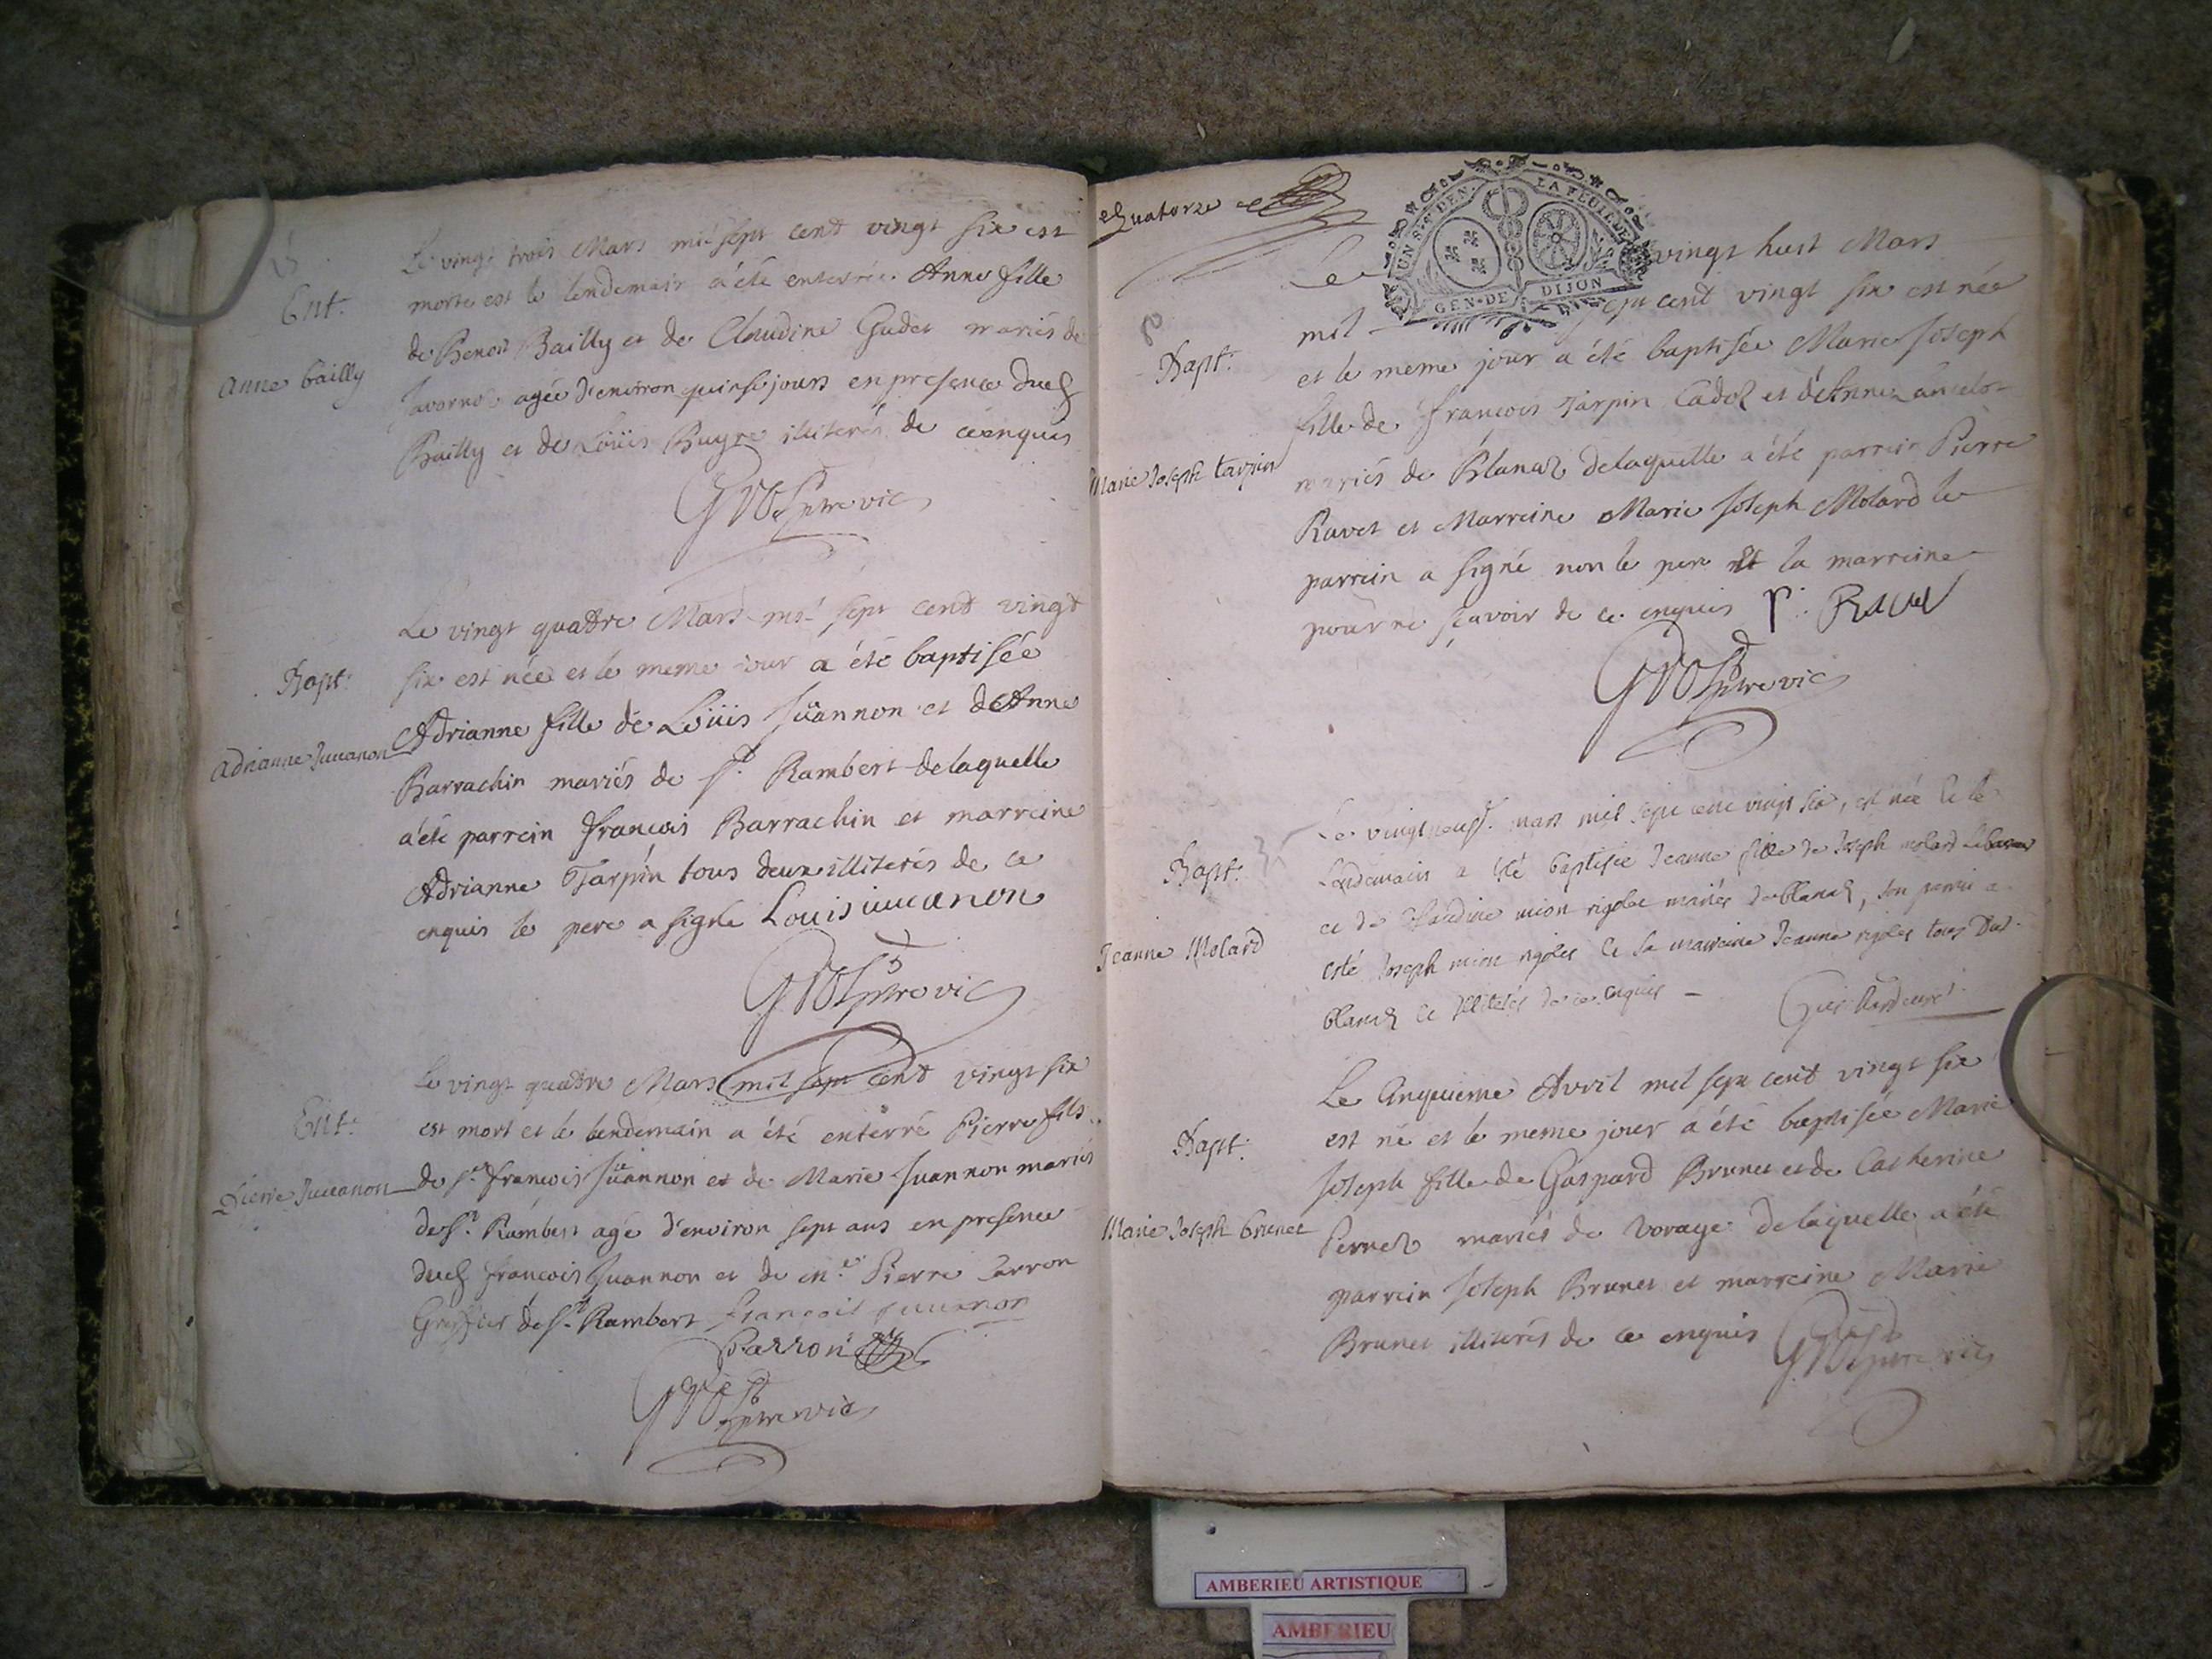 Ent.
Anne bailly
Le vingt trois Mars mil sept cent vingt six est
morte est le lendemain a été enterrée Anne fille
de Benoit Bailly et de Claudine Gudet mariés de
Javornoz agée d'environ quinse jours en presence dud
Bailly et de Loüis Buyre illiterés de ce enquis
Gros ptre vic
Bapt.
Adrianne Juuanon
Le vingt quattre Mars mil sept cent vingt
six est née et le meme jour a été baptisée
Adrianne fille de Loüis Jüannon et d'Anne
Barrachin mariés de St. Rambert delaquelle
a été parrein françois Barrachin et marreine
Adrianne Tarpin tous deux illiterés de ce
enquis le pere a signé Louis iuuanon
Gros ptre vic
Ent.
Pierre Juuanon
Le vingt quattre Mars mil sept cent vingt six
est mort et le lendemain a été enterré Pierre fils
de sr. françois Jüannon et de Marie Juannon mariés
de St. Rambert agé d'environ sept ans en presence
dud françois Juannon et de me. Pierre Parron
Greffier de St. Rambert françois iuuanon
Parron
Gros ptre vic
quatorze
UN S. 4 DEN. LA FEUILLE
GEN. DE DIJON
Bapt.
Marie Joseph tarpin
Le vingt huit Mars
mil sept cent vingt six est née
et le meme jour a été baptisée Marie Joseph
fille de françois Tarpin Cadoz et d'Anne Lancelot
mariés de Blanaz delaquelle a été parrein Pierre
Ravet et Marreine Marie Joseph Molard le
parrein a signé non le pere et la marreine
pour ne sçavoir de ce enquis P. Ravet
Gros ptre vic
Bapt.
Jeanne Molard
Le vingt neuf mars mil sept cent vingt six, est née et le
Lendemain a été baptisée Jeanne fille de Joseph molard
et de Claudine mion rigolet mariés de blanaz, son parrein a
esté Joseph mion rigolet et sa marreine Jeanne rigolet tous dud.
blanaz et illiterés de ce enquis
Bapt.
Marie Joseph brunet
Le Cinquieme Avril mil sept cent vingt six
est né et le meme jour a été baptisée Marie
Joseph fille de Gaspard Brunet et de Catherine
Pernez mariés de Vorage delaquelle a été
parrein Joseph Brunet et marreine Marie
Brunet illiterés de ce enquis
Gros ptre vic
AMBERIEU ARTISTIQUE
AMBERIEU